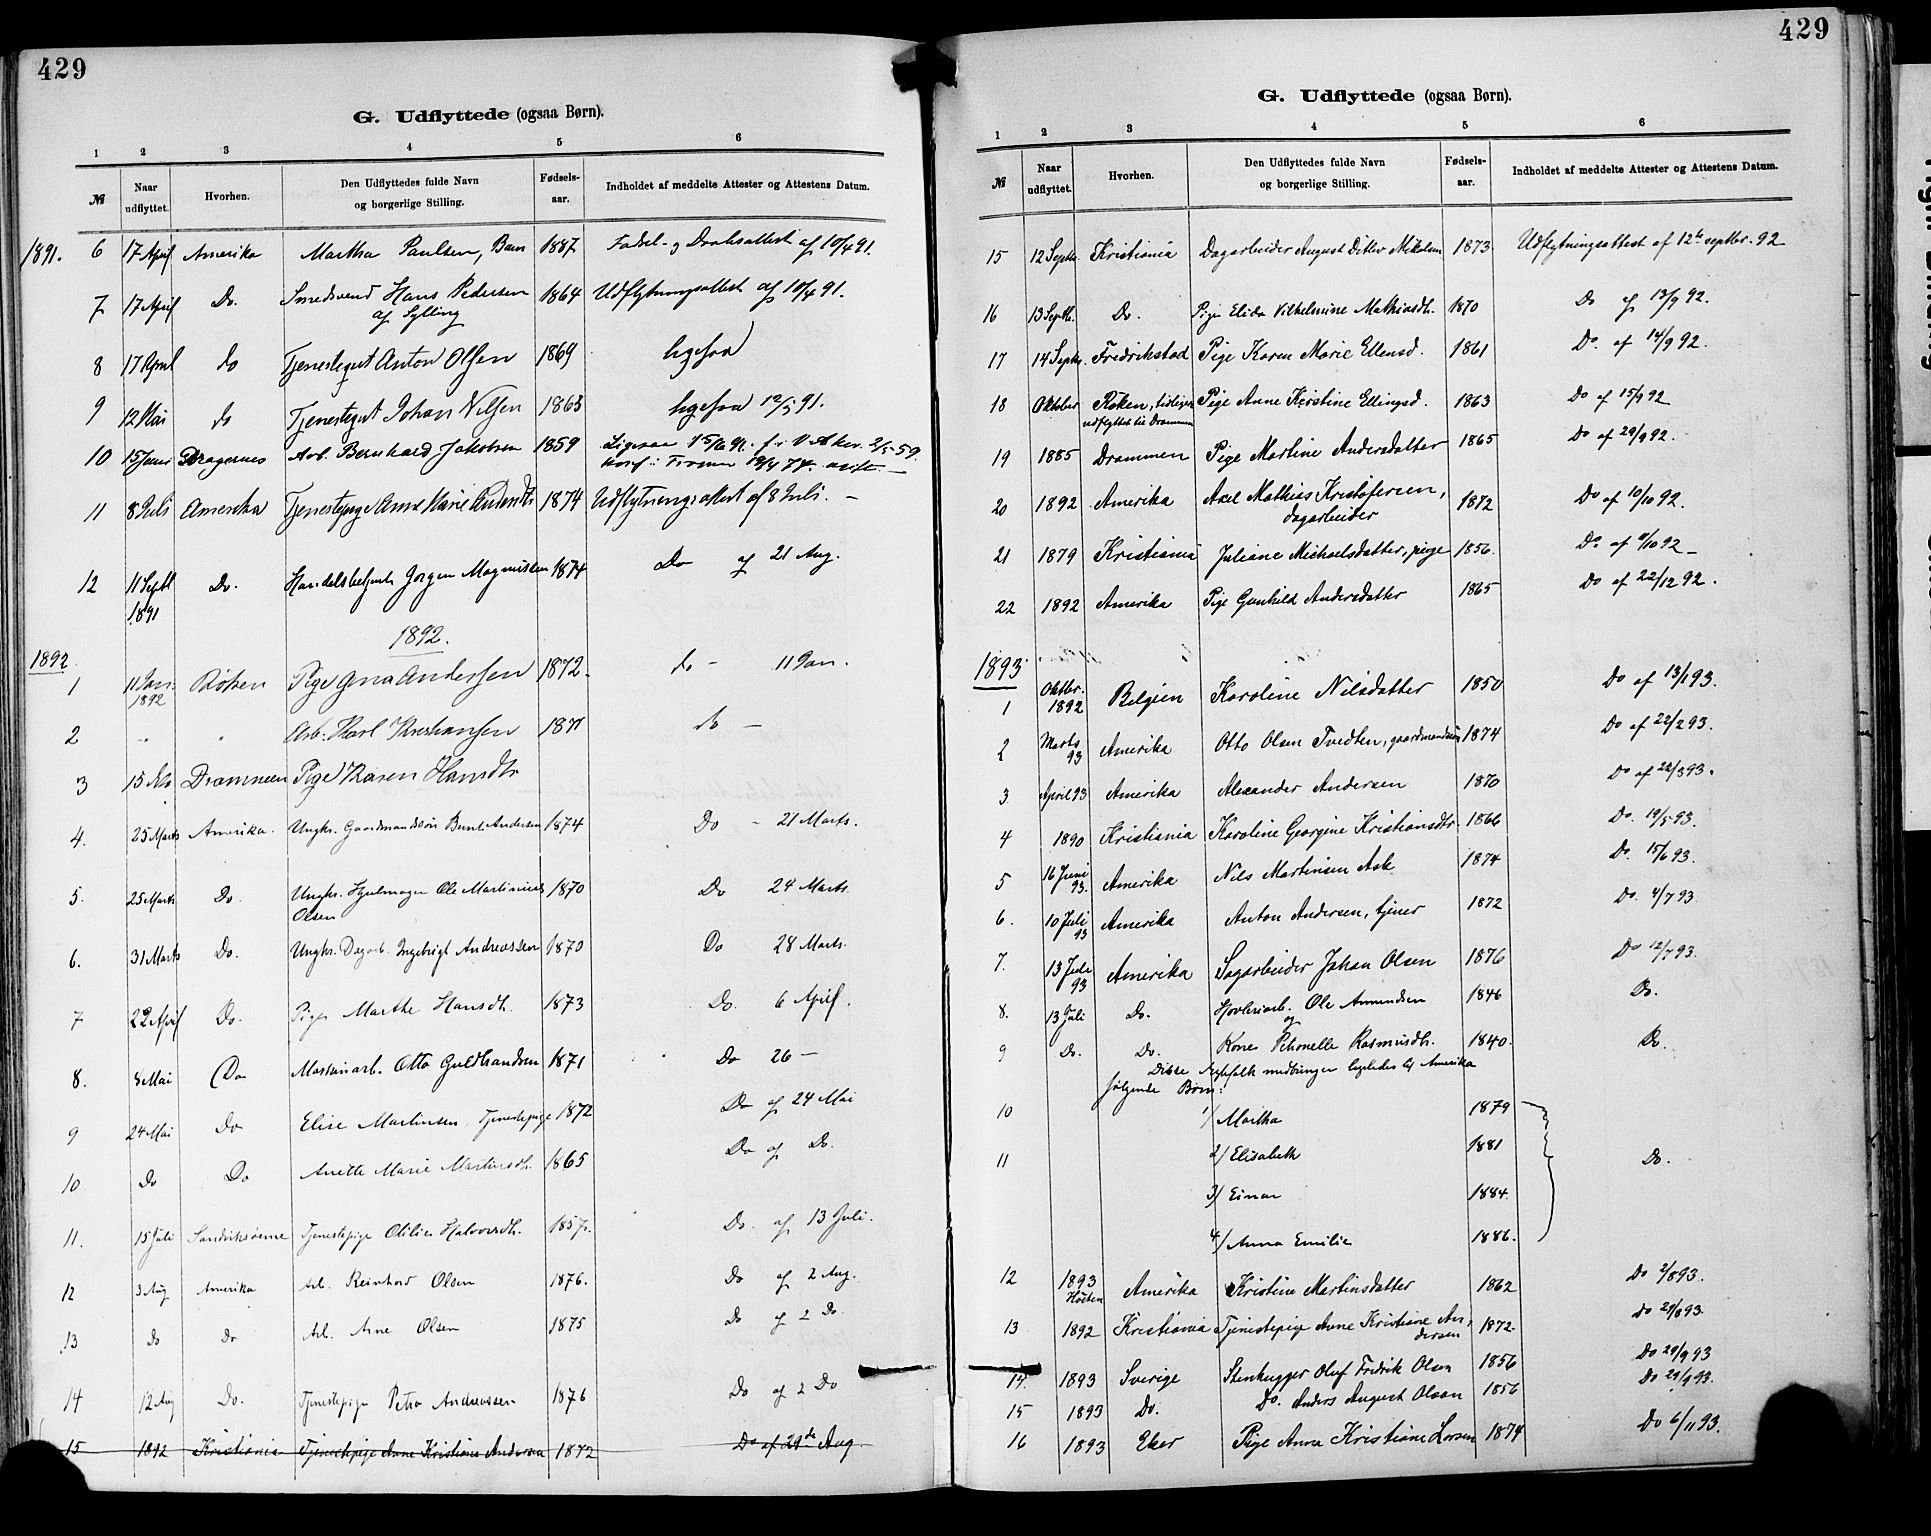 429
G. Udflyttede (ogsaa Børn).
1 2 3 4 5 6
№ Naar udflyttet. Hvorhen. Den Udflyttedes fulde Navn og borgerlige Stilling. Fødsels-aar. Indholdet af meddelte Attester og Attestens Datum.
1891. 6 17 April Amerika Martha Paulsen, Barn 1887. Fødsel- og Daabsattest af 10/4 91.
7 17 April Do. Smedsvend Hans Pedersen 1864 Udflytningsattest af 10/4 91.
af Sylling
8 17 April do Tjenestegut Anton Olsen 1869 ligesaa
9 12 Mai do Tjenestegut Johan Nilsen 1863 ligesaa 12/5 91.
10 15 Juni Bragernes Arb. Bernhard Jakobsen 1859 Ligesaa 15/6 91. f. i V. Aker 2/5 59.
11 8 Juli Amerika Tjenestepige Anne Marie 1874 Udflytningsattest af 8 Juli. –
12 11 Septb Do. Handelsbetjent Jørgen Magnussen 1874 Do af 21 Aug.
1891
1892.
1892.
1 11 Jan. Røken Pige Gna Andersen 1872. do – 11 Jan.
1892
2 " " Arb. Karl Kristiansen 1871 do –
3 15 Drammen Pige Karen Hansdtr
4. 25 Marts Amerika. Ungkr. Gaardmandssøn Bernt Andersen 1874 Do – 21 Marts.
5. 25 Marts Do. Ungkr. Hjulmager Ole Martinius 1870 Do 24 Marts.
Olsen
6. 31 Marts Do. Ungkr. Dagarb. Ingebrigt Andreassen 1870 Do 28 Marts.
7 22 April Do. Pige Marthe Hansdtr. 1873 Do. 6 April.
8. 8 Mai Do Maskinarb. Otto Guldbrandsen 1871 Do 26 –
9 24 Mai Do Elise Martinsen, Tjenestepige 1872 Do af 24 Mai
10 Do Do Anette Marie Martinsdtr. 1865 Do af Do.
11. 15 Juli Sandviksørerne Tjenestepige Otilie Halvorsdtr. 1857. Do. af 13 Juli.
12 3 Aug Amerika Arb. Reinhard Olsen 1876. Do af 2 Aug.
13 do do Arb. Arne Olsen 1875 Do af 2 Do.
14 12 Aug Do. Tjenestepige Petra Andreassen 1876 Do af 2 Do
15 1892 Kristiania Tjenestepige Anne Kristiane Andersen 1872 Do af 29de Aug.
429
G. Udflyttede (ogsaa Børn).
1 2 3 4 5 6
№ Naar udflyttet. Hvorhen. Den Udflyttedes fulde Navn og borgerlige Stilling. Fødsels-aar. Indholdet af meddelte Attester og Attestens Datum.
15 12 Septbr. Kristiania Dagarbeider August Ditlev Mikelsen 1873 Udflytningsattest af 12te septbr. 92
16 13 Septb. Do. Pige Elida Vilhelmine Mathiasdtr. 1870 Do af 13/9 92.
17 14 Septbr. Fredrikstad Pige Karen Marie Ellensd. 1861 Do. af 14/9 92.
18 Oktober Røken, tidligere Pige Anne Kirstine Ellingsd. 1863 Do af 15/9 92
udflyttet til Drammen
19 1885 Drammen Pige Martine Andersdatter 1865 Do af 29/9 92.
20 1892 Amerika Axel Mathias Kristofersen, 1872 Do af 10/10 92.
dagarbeider
21 1879 Kristiania Juliane Michaelsdatter, pige 1856. Do. af /10 92 –
22 1892 Amerika Pige Gunhild Andersdatter 1865 Do af 22/12 92.
1893.
1 Oktbr. 1892 Belgien Karoline Nilsdatter 1850 Do af 13/1 93.
2 Marts 93 Amerika Otto Olsen Tvedten, gaardmandssøn 1874 Do af 22/2 93.
3 April 93 Amerika Alexander Andersen 1870 Do af 22/3 93.
4 1890 Kristiania Karoline Georgine Kristiansdtr. 1866 Do. 19/5 93.
5 16 Juni 93. Amerika Nils Martinsen Ask 1874 Do. 15/6 93.
6. 10 Juli 93 Amerika Anton Andersen, tjener 1872 Do. 4/7 93.
7. 13 Jule 93 Amerika Sagarbeider Johan Olsen 1876 Do 12/7 93.
8. 13 Juli Do. Høvleriarb. Ole Amundsen 1846 Do.
og
9 Do. Do. Kone Petronelle Rasmusdtr. 1840. Do.
Disse Ægtefolk medbringer ligeledes til Amerika
følgende Børn:
10 1/ Martha 1879
11 2/ Elisabeth 1881 Do.
3/ Einar 1884.
4/ Anna Emilie 1886.
12 1893 Høsten Amerika Kristine Martinsdatter 1862 Do 2/8 93.
13 1892 Kristiania Tjenestepige Anne Kristiane An- 1872. Do 29/8 93.
dersen
14. 1893 Sverige Stenhugger Oluf Fredrik Olsen 1856 Do 29/9 93
15 1893 Do. Do. Anders August Olsen 1856 Do 29/9 93.
16 1893 Eker Pige Anna Kristiane Larsen 1874 Do 6/11 93.